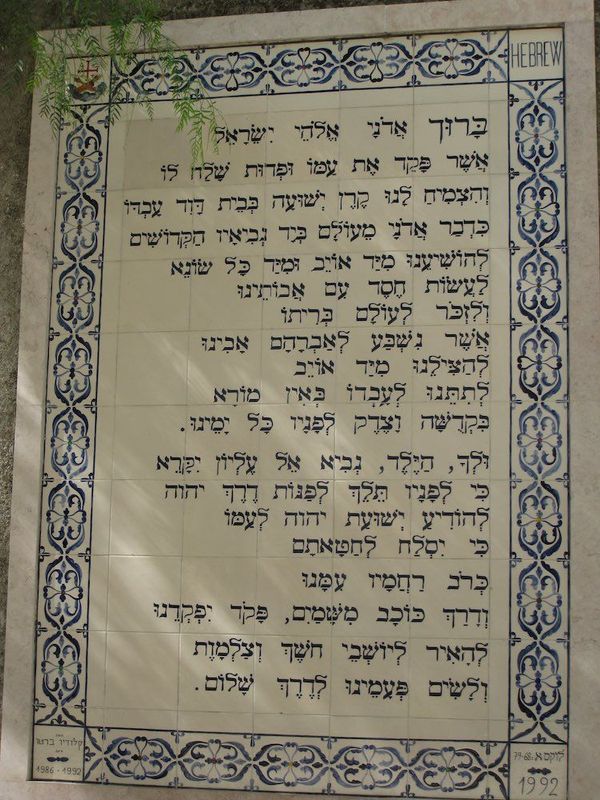 HEBREW
בָּרוּךְ אֲדֹנָי אֱלֹהֵי יִשְׂרָאֵל
אֲשֶׁר פָּקַד אֶת עַמּוֹ וּפְדוּת שָׁלַח לוֹ
וְהִצְמִיחַ לָנוּ קֶרֶן יְשׁוּעָה בְּבֵית דָּוִד עַבְדּוֹ
כִּדְבַר אֲדֹנָי מֵעוֹלָם בְּיַד נְבִיאָיו הַקְּדוֹשִׁים
לְהוֹשִׁיעֵנוּ מִיַּד אוֹיֵב וּמִיַּד כָּל שׂוֹנֵא
לַעֲשׂוֹת חֶסֶד עִם אֲבוֹתֵינוּ
וְלִזְכֹּר לְעוֹלָם בְּרִיתוֹ
אֲשֶׁר נִשְׁבַּע לְאַבְרָהָם אָבִינוּ
לְהַצִּילֵנוּ מִיַּד אוֹיֵב
לְתִתֵּנוּ לְעָבְדוֹ בְּאֵין מוֹרָא
בִּקְדֻשָּׁה וָצֶדֶק לְפָנָיו כָּל יָמֵינוּ.
וּלְךָ, הַיֶּלֶד, נְבִיא אֵל עֶלְיוֹן יִקָּרֵא
כִּי לְפָנָיו תֵּלֵךְ לְפַנּוֹת דֶּרֶךְ יהוה
לְהוֹדִיעַ יְשׁוּעַת יהוה לְעַמּוֹ
כִּי יִסְלַח לְחַטֹּאתָם
בְּרֹב רַחֲמָיו עִמָּנוּ
וְדָרַךְ כּוֹכָב מִשָּׁמַיִם, פָּקֹד יִפְקְדֵנוּ
לְהָאִיר לְיוֹשְׁבֵי חֹשֶׁךְ וְצַלְמָוֶת
וְלָשִׂים פְּעָמֵינוּ לְדֶרֶךְ שָׁלוֹם.
קלודיו ברטר
1986-1992
לוקס א: 68-79
1992